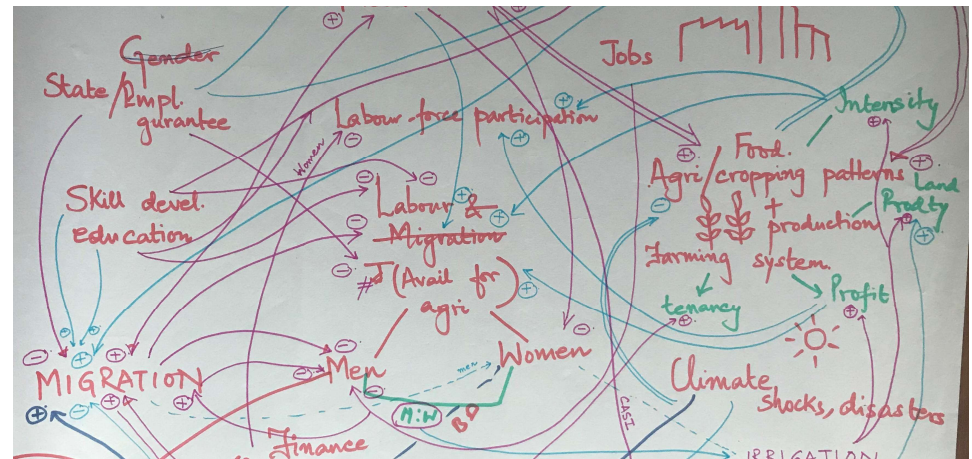 Gender
Jobs
State/Empl.
gurantee
Intensity
Labour force participation
Women
Food.
Agri/cropping patterns
+
production
Land
Prodty
Skill devel.
education
Labour &
Migration
# (Avail for
agri)
Farming system
tenancy
Profit
Men
Women
men
MIGRATION
M:W
Climate,
shocks, disasters
CASI
Finance
IRRIGATION